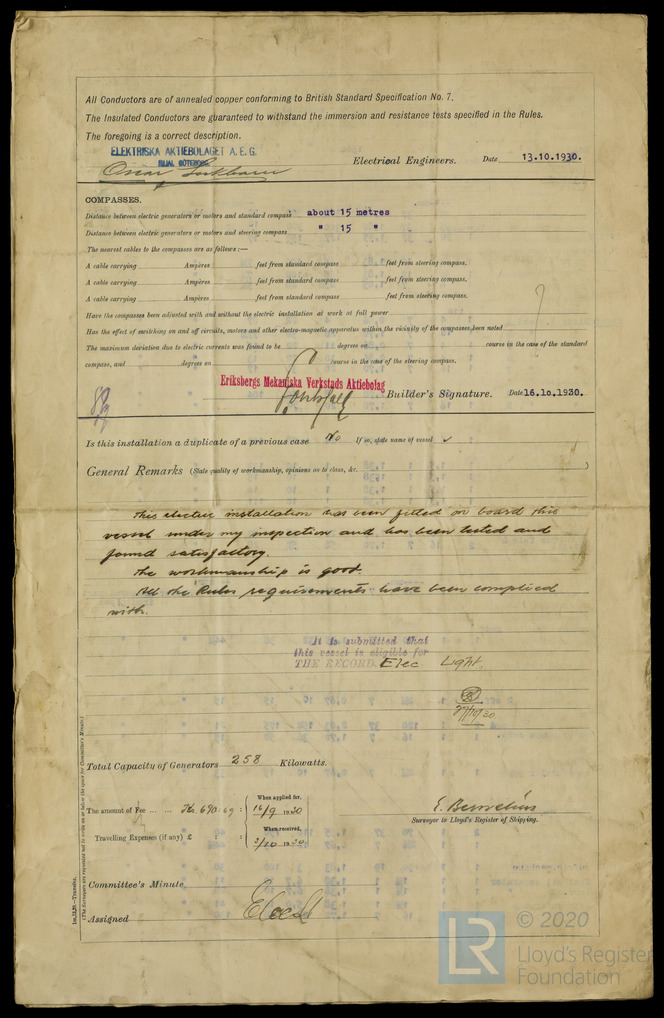 All Conductors are of annealed copper conforming to British Standard Specification No. 7.
The Insulated Conductors are guaranteed to withstand the immersion and resistance tests specified in the Rules.
The foregoing is a correct description.
ELEKTRISKA AKTIEBOLAGET A. E. G.
FILIAL GÖTEBORG
Oscar
Electrical Engineers. Date 13.10.1930.
COMPASSES.
Distance between electric generators or motors and standard compass about 15 metres
Distance between electric generators or motors and steering compass " 15 "
The nearest cables to the compasses are as follows:—
A cable carrying Ampères feet from standard compass feet from steering compass.
A cable carrying Ampères feet from standard compass feet from steering compass.
A cable carrying Ampères feet from standard compass feet from steering compass.
Have the compasses been adjusted with and without the electric installation at work at full power
Has the effect of switching on and off circuits, motors and other electro-magnetic apparatus within the vicinity of the compasses been noted
The maximum deviation due to electric currents was found to be degrees on course in the case of the standard
compass, and degrees on course in the case of the steering compass.
Eriksbergs Mekaniska Verkstads Aktiebolag
Builder's Signature. Date 16.10.1930.
Is this installation a duplicate of a previous case No If so, state name of vessel ✓
General Remarks (State quality of workmanship, opinions as to class, &c.
This electric installation has been fitted on board this
vessel under my inspection and has been tested and
found satisfactory.
The workmanship is good.
All the Rules requirements have been complied
with.
It is submitted that
this vessel is eligible for
THE RECORD. Elec Light.
27/10/30
Total Capacity of Generators 258 Kilowatts.
The amount of Fee ... ... Kr. 690:69 : When applied for, 16/9 1930
Travelling Expenses (if any) £ : : When received, 3/10 1930
Surveyor to Lloyd's Register of Shipping.
Committee's Minute
Assigned
1m.11.30.—Transfer.
(The Surveyors are requested not to write on or below the space for Committee's Minute.)
LR © 2020
Lloyd's Register
Foundation